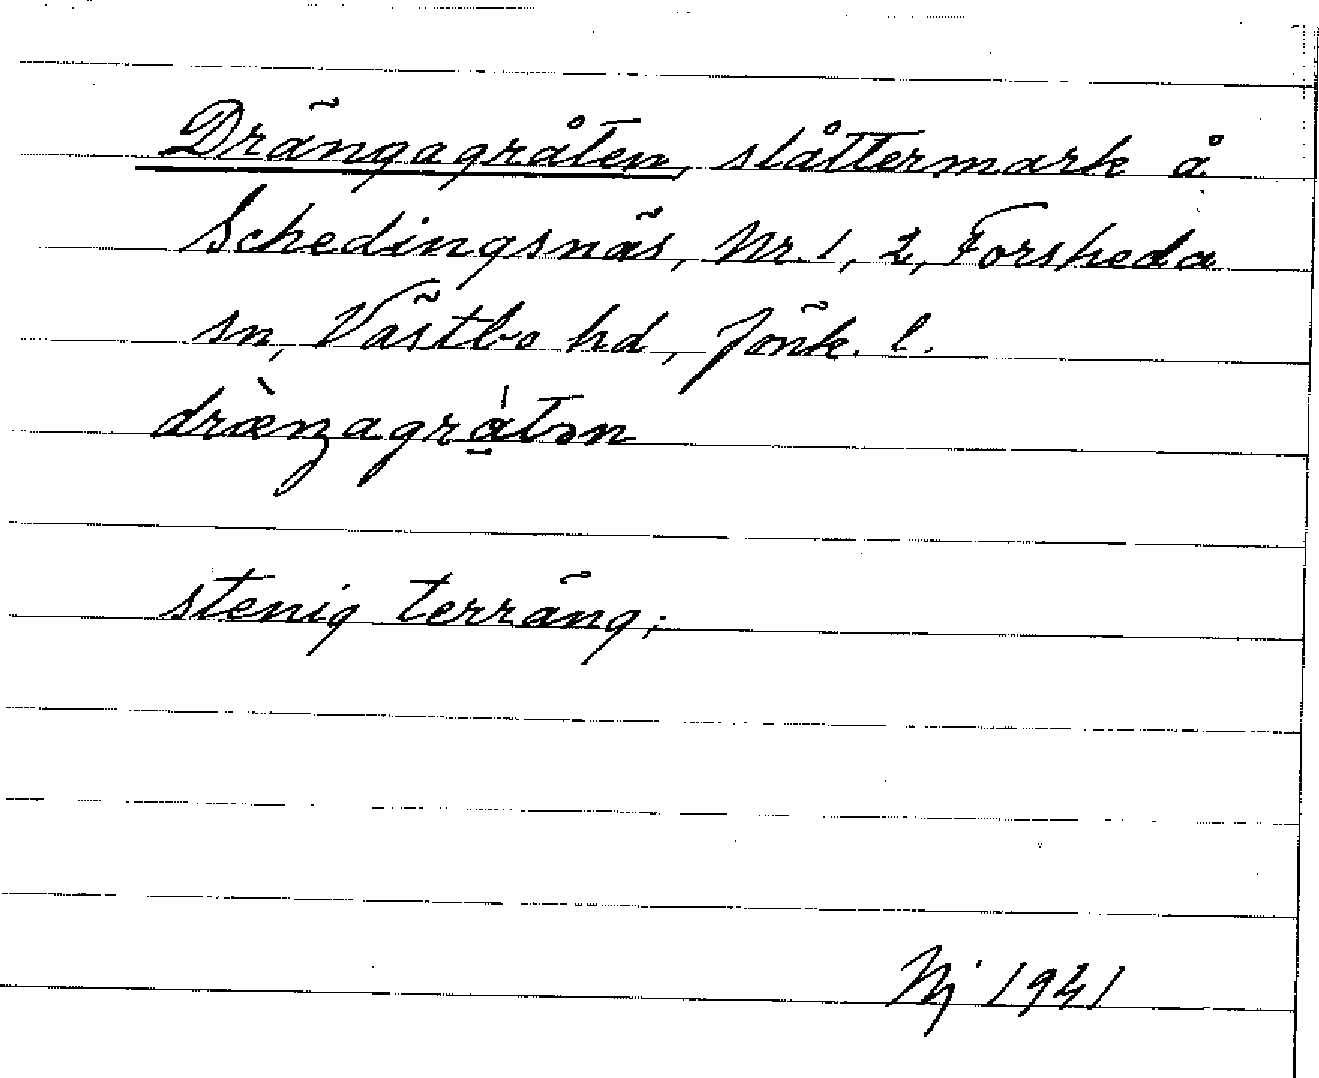 Drängagråten, slåttermark å
Schedingsnäs, Nr. 1, 2, Forsheda
sn, Västbo hd, Jönk. l.
dræ̀ŋagrátən
stenig terräng;
Nj 1941